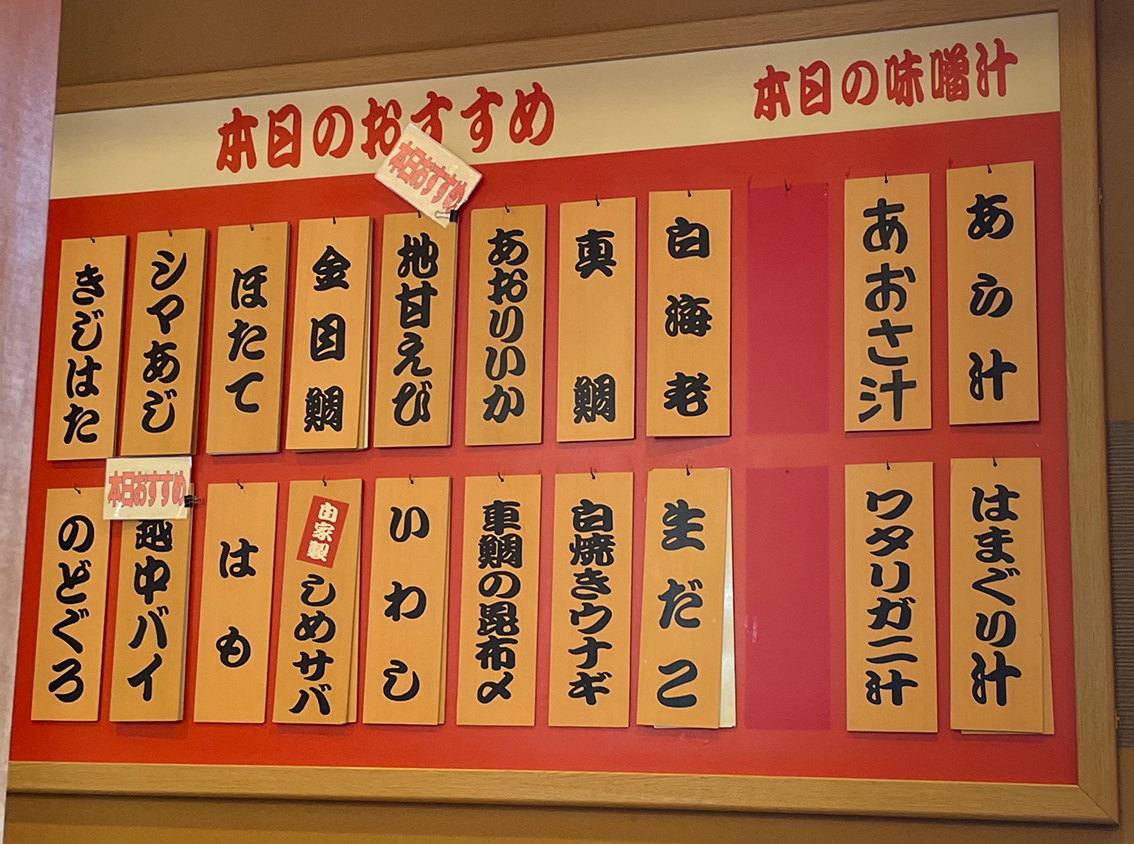 本日のおすすめ
本日の味噌汁
本日おすすめ
あら汁
あおさ汁
白海老
真鯛
あおりいか
地甘えび
金目鯛
ほたて
シマあじ
きじはた
はまぐり汁
ワタリガニ汁
生だこ
白焼きウナギ
車鯛の昆布〆
いわし
自家製
しめサバ
はも
本日おすすめ
越中バイ
のどぐろ